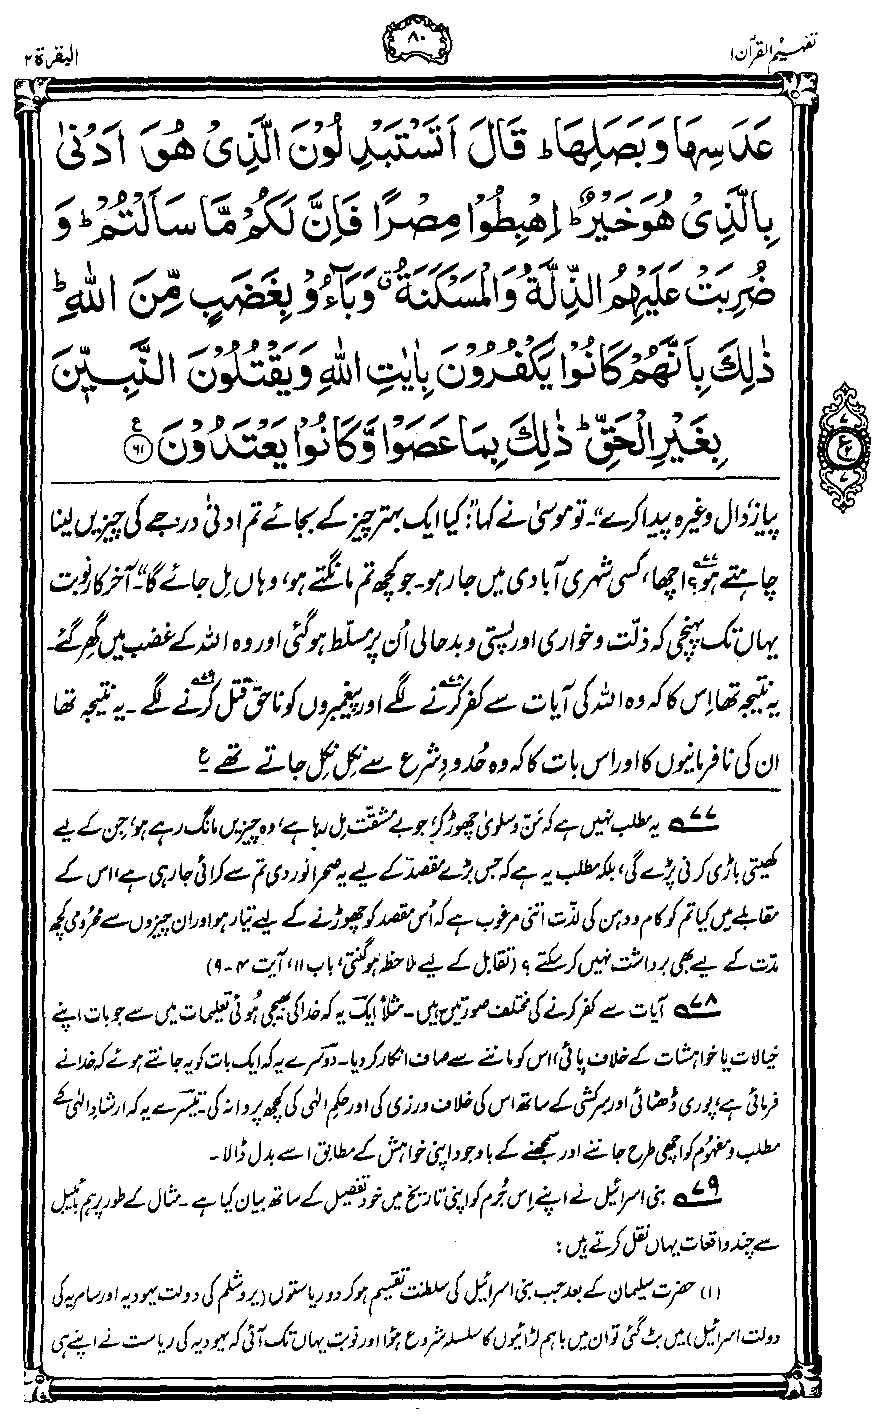 تفہیم القرآن ۱
۸۰
البقرۃ ۲
عَدَسِهَا وَبَصَلِهَا ؕ قَالَ اَتَسْتَبْدِلُوْنَ الَّذِیْ هُوَ اَدْنٰی
بِالَّذِیْ هُوَ خَیْرٌ ؕ اِهْبِطُوْا مِصْرًا فَاِنَّ لَكُمْ مَّا سَاَلْتُمْ ؕ وَ
ضُرِبَتْ عَلَیْهِمُ الذِّلَّةُ وَالْمَسْكَنَةُ ۗ وَبَآءُوْ بِغَضَبٍ مِّنَ اللّٰهِ ؕ
ذٰلِكَ بِاَنَّهُمْ كَانُوْا یَكْفُرُوْنَ بِاٰیٰتِ اللّٰهِ وَیَقْتُلُوْنَ النَّبِیّٖنَ
بِغَیْرِ الْحَقِّ ؕ ذٰلِكَ بِمَا عَصَوْا وَّكَانُوْا یَعْتَدُوْنَ ۶۱ ع
۷ ع ۶ ۷
پیاز، دال وغیرہ پیدا کرے“۔ تو موسیٰ نے کہا: ”کیا ایک بہتر چیز کے بجائے تم ادنیٰ درجے کی چیزیں لینا
چاہتے ہو؟۷۷ اچھا، کسی شہری آبادی میں جا رہو۔ جو کچھ تم مانگتے ہو، وہاں مل جائے گا“۔ آخرکار نوبت
یہاں تک پہنچی کہ ذلّت و خواری اور پستی و بدحالی اُن پر مسلّط ہو گئی اور وہ اللہ کے غضب میں گھِر گئے۔
یہ نتیجہ تھا اِس کا کہ وہ اللہ کی آیات سے کفر کرنے۷۸ لگے اور پیغمبروں کو ناحق قتل کرنے۷۹ لگے۔ یہ نتیجہ تھا
ان کی نافرمانیوں کا اور اس بات کا کہ وہ حُدودِ شرع سے نِکل نِکل جاتے تھے ع
۷۷ یہ مطلب نہیں ہے کہ مَن و سلویٰ چھوڑ کر، جو بے مشقّت مِل رہا ہے، وہ چیزیں مانگ رہے ہو، جن کے لیے
کھیتی باڑی کرنی پڑے گی، بلکہ مطلب یہ ہے کہ جس بڑے مقصد کے لیے یہ صحرا نوردی تم سے کرائی جا رہی ہے، اس کے
مقابلے میں کیا تم کو کام و دہن کی لذّت اتنی مرغوب ہے کہ اُس مقصد کو چھوڑنے کے لیے تیار ہو اور ان چیزوں سے محرومی کچھ
مدّت کے لیے بھی برداشت نہیں کر سکتے؟ (تقابل کے لیے ملاحظہ ہو گنتی، باب ۱۱، آیت ۴-۹)
۷۸ آیات سے کفر کرنے کی مختلف صورتیں ہیں۔ مثلاً ایک یہ کہ خدا کی بھیجی ہُوئی تعلیمات میں سے جو بات اپنے
خیالات یا خواہشات کے خلاف پائی، اس کو ماننے سے صاف انکار کر دیا۔ دوسرے یہ کہ ایک بات کو یہ جانتے ہوئے کہ خدا نے
فرمائی ہے، پوری ڈھٹائی اور سرکشی کے ساتھ اس کی خلاف ورزی کی اور حکمِ الٰہی کی کچھ پروا نہ کی۔ تیسرے یہ کہ ارشادِ الٰہی کے
مطلب و مفہُوم کو اچھی طرح جاننے اور سمجھنے کے باوجود اپنی خواہش کے مطابق اسے بدل ڈالا۔
۷۹ بنی اسرائیل نے اپنے اِس جُرم کو اپنی تاریخ میں خود تفصیل کے ساتھ بیان کیا ہے۔ مثال کے طور پر ہم بائیبل
سے چند واقعات یہاں نقل کرتے ہیں:
(۱) حضرت سلیمان کے بعد جب بنی اسرائیل کی سلطنت تقسیم ہو کر دو ریاستوں (یروشلم کی دولتِ یہودیہ اور سامریہ کی
دولتِ اسرائیل) میں بٹ گئی تو ان میں باہم لڑائیوں کا سلسلہ شروع ہُوا اور نوبت یہاں تک آئی کہ یہودیہ کی ریاست نے اپنے ہی